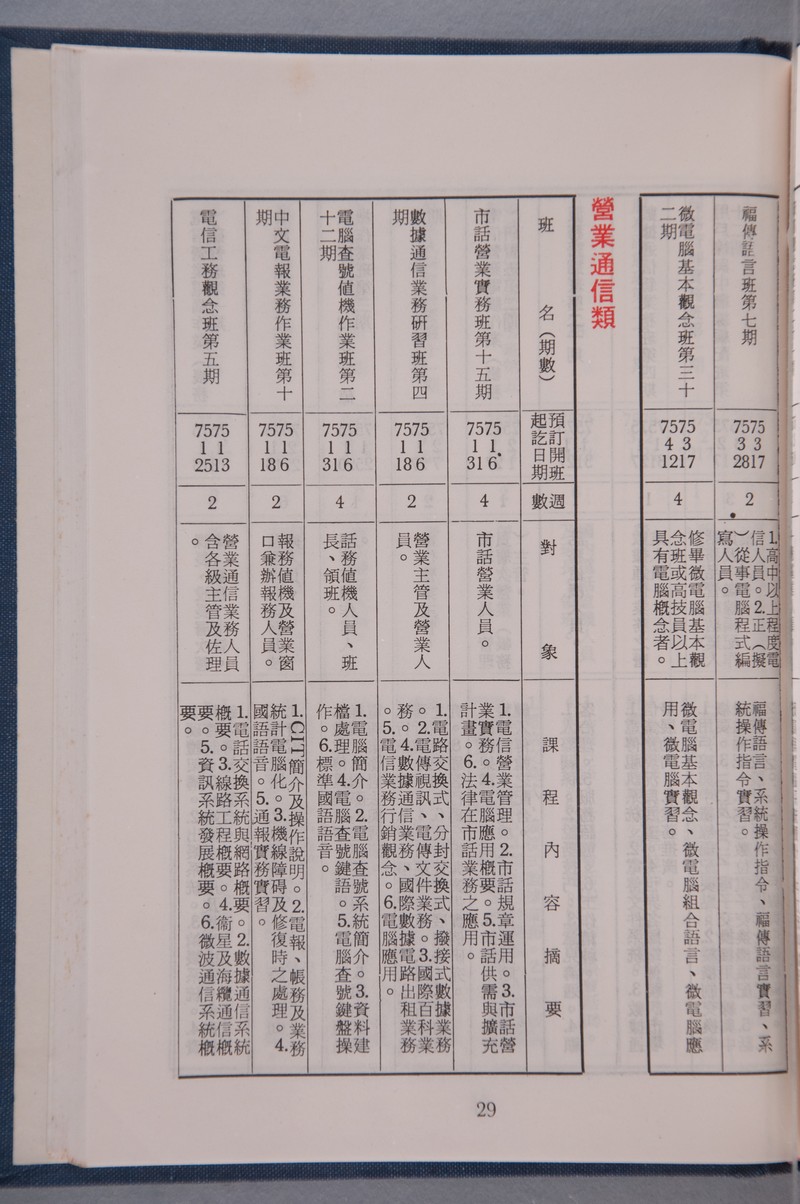 福傳語言班第七期
7575
3 3
2817
2
1.高中以上程度電
信人員。2.正(擬
)從事電腦程式編
寫人員。
福傳語言、系統操作指令、福傳語言實習、系
統操作指令實習。
微電腦基本觀念班第三十
二期
7575
4 3
1217
4
修畢微電腦基本觀
念班或高技員以上
具有電腦概念者。
微電腦基本觀念、微電腦組合語言、微電腦應
用、微電腦實習。
營業通信類
班名(期數)
預訂開班
起訖日期
週數
對象
課程內容摘要
市話營業實務班第十五期
7575
1 1
316
4
市話營業人員。
1.電信營業管理。2.市話規章運用。3.市話營
業實務。4.電腦應用概要。5.市話供需與擴充
計畫。6.法律在市話業務之應用。
數據通信業務研習班第四
期
7575
1 1
186
2
營業主管及營業人
員。
1.電路交換式、分封交換式、撥接式數據業務
。2.電傳視訊、電傳文件業務。3.國際百科業
務。4.數據通信業務、國際數據電路出租業務
。5.電信業務行銷觀念。6.電腦應用。
電腦查號值機作業班第二
十二期
7575
1 1
316
4
話務值機人員、班
長、領班。
1.電腦簡介。2.電腦查號系統簡介。3.資料建
檔處理。4.電腦查號鍵語。5.電腦查號鍵盤操
作。6.標準國語語音。
中文電報業務作業班第十
期
7575
1 1
186
2
報務值機及營業窗
口兼辦報務人員。
1.CIT簡介及操作說明。2.電報、帳務及業務
統計電腦化。3.機線障碍及修復時之處理。4.
國語語音。5.通報實務實習。
電信工務觀念班第五期
7575
1 1
2513
2
營業通信業務人員
含各級主管及佐理
。
1.電話交換系統與網路概要。2.數據通信系統
概要。3.線路工程概要。4.衞星及海纜通信概
要。5.資訊系統發展概要。6.微波通信系統概
要。
29